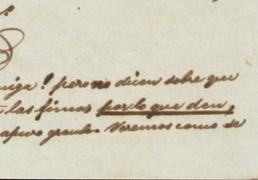 niga! pero no dicen sobre que
las fincas por lo que den,
apuro grande. Veremos como se